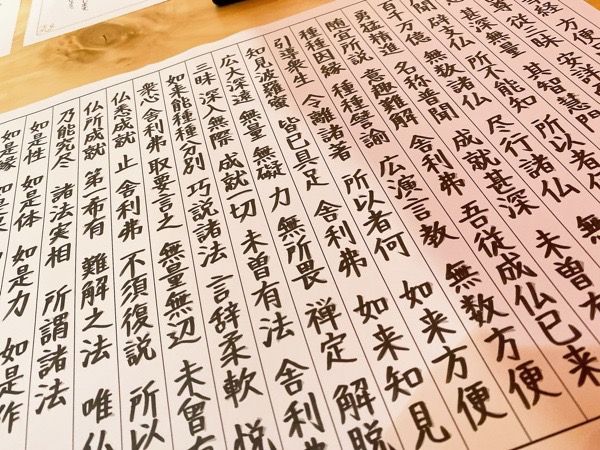 経 方便
従三昧 安詳
甚深無量 其智慧門
聞 辟支仏 所不能知 所以者何
百千万億 無数諸仏 尽行諸仏 無
勇猛精進 名称普聞 成就甚深 未曾有
随宜所説 意趣難解 舎利弗 吾従成仏已来
種種因縁 種種譬喩 広演言教 無数方便
引導衆生 令離諸著 所以者何 如来方便
知見波羅蜜 皆已具足 舎利弗 如来知見
広大深遠 無量 無礙 力 無所畏 禅定 解脱
三昧 深入無際 成就一切 未曽有法 舎利弗
如来能種種分別 巧説諸法 言辞柔軟 悦
衆心 舎利弗 取要言之 無量無辺 未曽有
仏悉成就 止 舎利弗 不須復説 所以
仏所成就 第一希有 難解之法 唯仏
乃能究尽 諸法実相 所謂諸法
如是性 如是体 如是力 如是作
如是縁